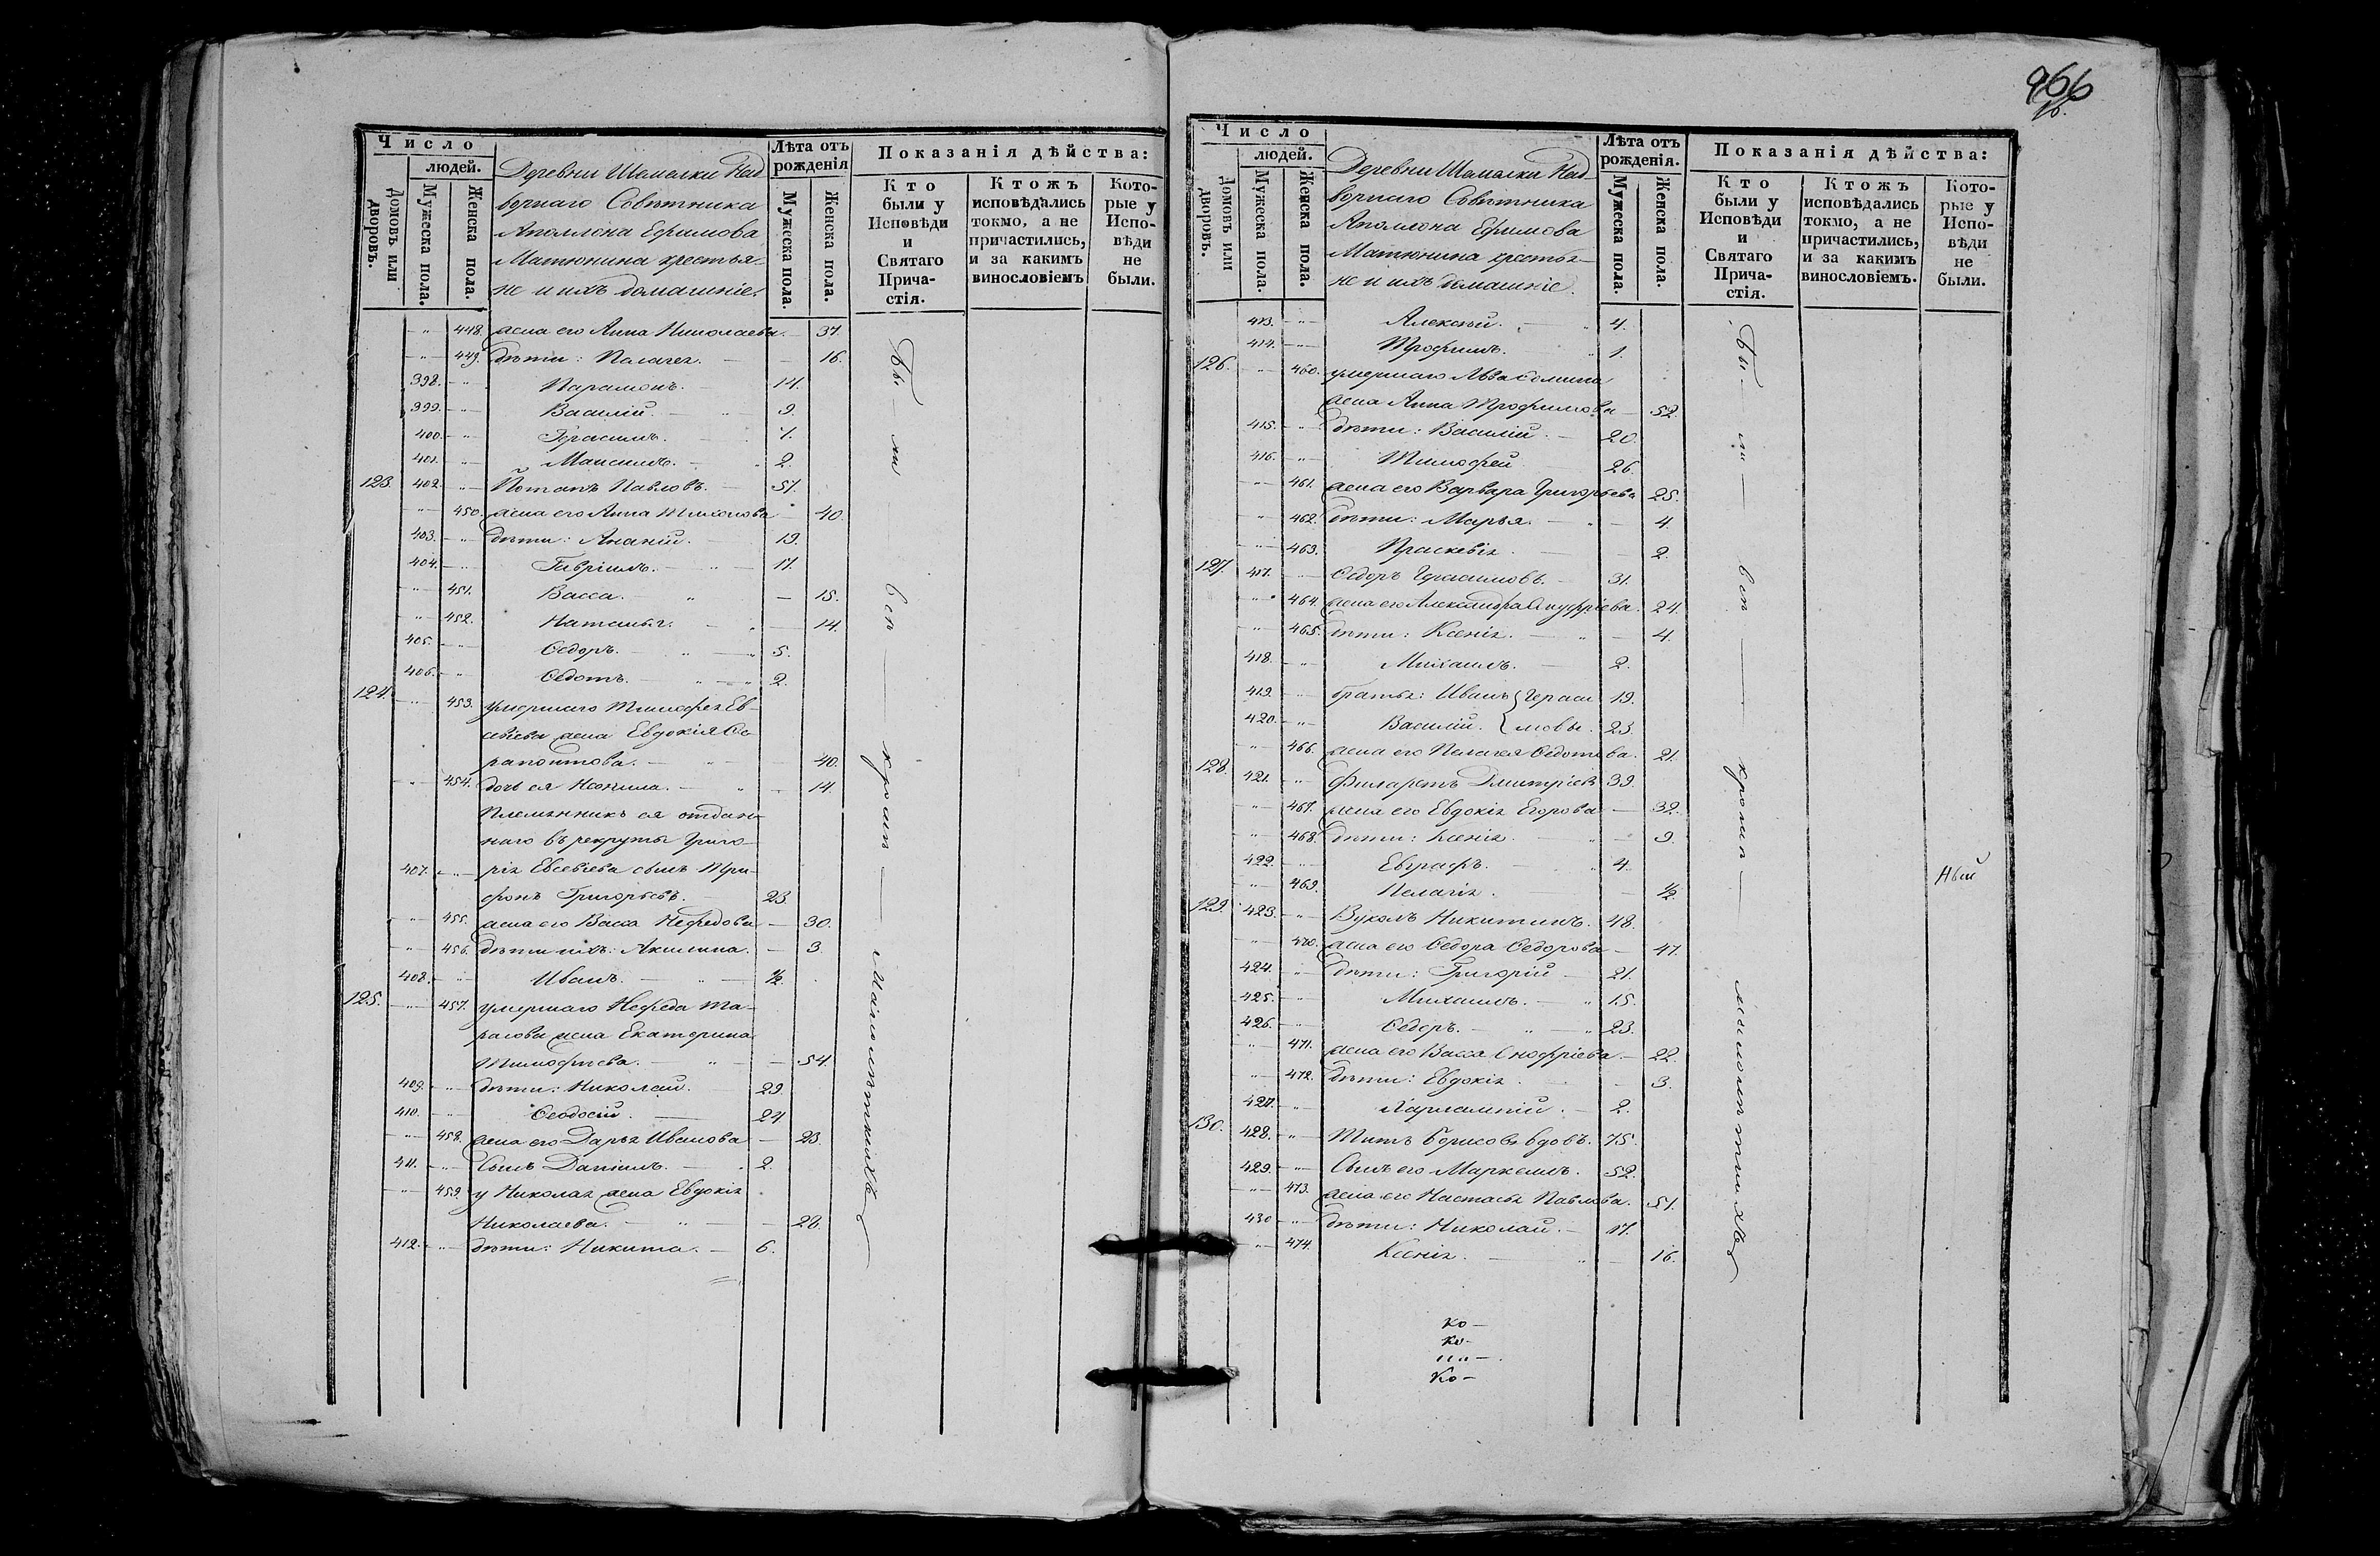 966
Число
людей.
Домовъ или дворовъ.
Мужеска пола.
Женска пола.
Деревни Шамалки Над-
ворнаго Совѣтника
Аполлона Ефимова
Матюнина крестья-
не и ихъ домашніе.
Лѣта отъ рожденія
Мужеска пола.
Женска пола.
Показанія дѣйства:
Кто были у Исповѣди и Святаго Причастія.
Ктожъ исповѣдались токмо, а не причастились, и за какимъ винословіемъ
Которые у Исповѣди не были.
448. жена его Анна Николаева. 37.
449. дѣти: Пелагея. 16.
398. Парамонъ. 14.
399. Василій. 9.
400. Герасимъ. 7.
401. Максимъ. 2.
123. 402. Потапъ Павловъ. 51.
450. жена его Анна Тихонова 40.
403. дѣти: Ананій. 19.
404. Гавріилъ. 17.
451. Васса. 15.
452. Наталья. 14.
405. Ѳедоръ. 5.
406. Ѳедотъ. 2.
124. 453. умершаго Тимофея Ев-
сѣева жена Евдокія Ѳе-
рапонтова. 40.
454. дочь ея Неонила. 14.
Племянникъ ея отдан-
наго въ рекруты Григо-
407. рія Евсевіева сынъ Три-
фонъ Григорьевъ. 23
455. жена его Васса Нефедова 30.
456. дѣти ихъ: Акилина. 3.
408. Иванъ. ½.
125. 457. умершаго Нефеда Та-
расова жена Екатерина
Тимофеева. 54.
409. дѣти: Николай. 29.
410. Ѳеодосій. 24
458. жена его Дарья Иванова 23.
411. Сынъ Даніилъ. 2.
459. у Николая жена Евдокія
Николаева. 28.
412. дѣти: Никита. 6.
Бы - ли вси кромѣ малолѣтнихъ
Число
людей.
Домовъ или дворовъ.
Мужеска пола.
Женска пола.
Деревни Шамалки Над-
ворнаго Совѣтника
Аполлона Ефимова
Матюнина крестья-
не и ихъ домашніе.
Лѣта отъ рожденія.
Мужеска пола.
Женска пола.
Показанія дѣйства:
Кто были у Исповѣди и Святаго Причастія.
Ктожъ исповѣдались токмо, а не причастились, и за какимъ винословіемъ.
Которые у Исповѣди не были.
413. Алексѣй. 4.
414. Трофимъ. 1.
126. 460. умершаго Льва Сомина
жена Анна Трофимова 52.
415. дѣти: Василій. 20.
416. Тимофей 26.
461. жена его Варвара Григорьева 25.
462. дѣти: Марья. 4.
463. Праскевія. 2.
127. 417. Ѳедоръ Герасимовъ. 31.
464. жена его Александра Онуфріева. 24.
465. дѣти: Ксенія. 4.
418. Михаилъ. 2.
419. братья: Иванъ Гераси 19.
420. Василій. мовы. 23.
466. жена его Пелагея Ѳедотова. 21.
128. 421. Филаретъ Дмитріевъ 39.
467. жена его Евдокія Егорова 32.
468. дѣти: Ксенія. 9.
422. Евграфъ. 4.
469. Пелагія. ½.
129. 423. Вуколъ Никитинъ. 48.
470. жена его Ѳедора Ѳедорова 47.
424. дѣти: Григорій 21.
425. Михаилъ. 15.
426. Ѳедоръ. 23.
471. жена его Васса Онофріева. 22.
472. дѣти: Евдокія. 3.
427. Харлампій. 2.
130. 428. Титъ Борисовъ вдовъ. 75.
429. Сынъ его Маркелъ. 52.
473. жена его Настасья Павлова. 51.
430 дѣти: Николай. 17.
474. Ксенія. 16.
Бы - ли вси кромѣ малолѣтнихъ
ко -
ко -
ко -